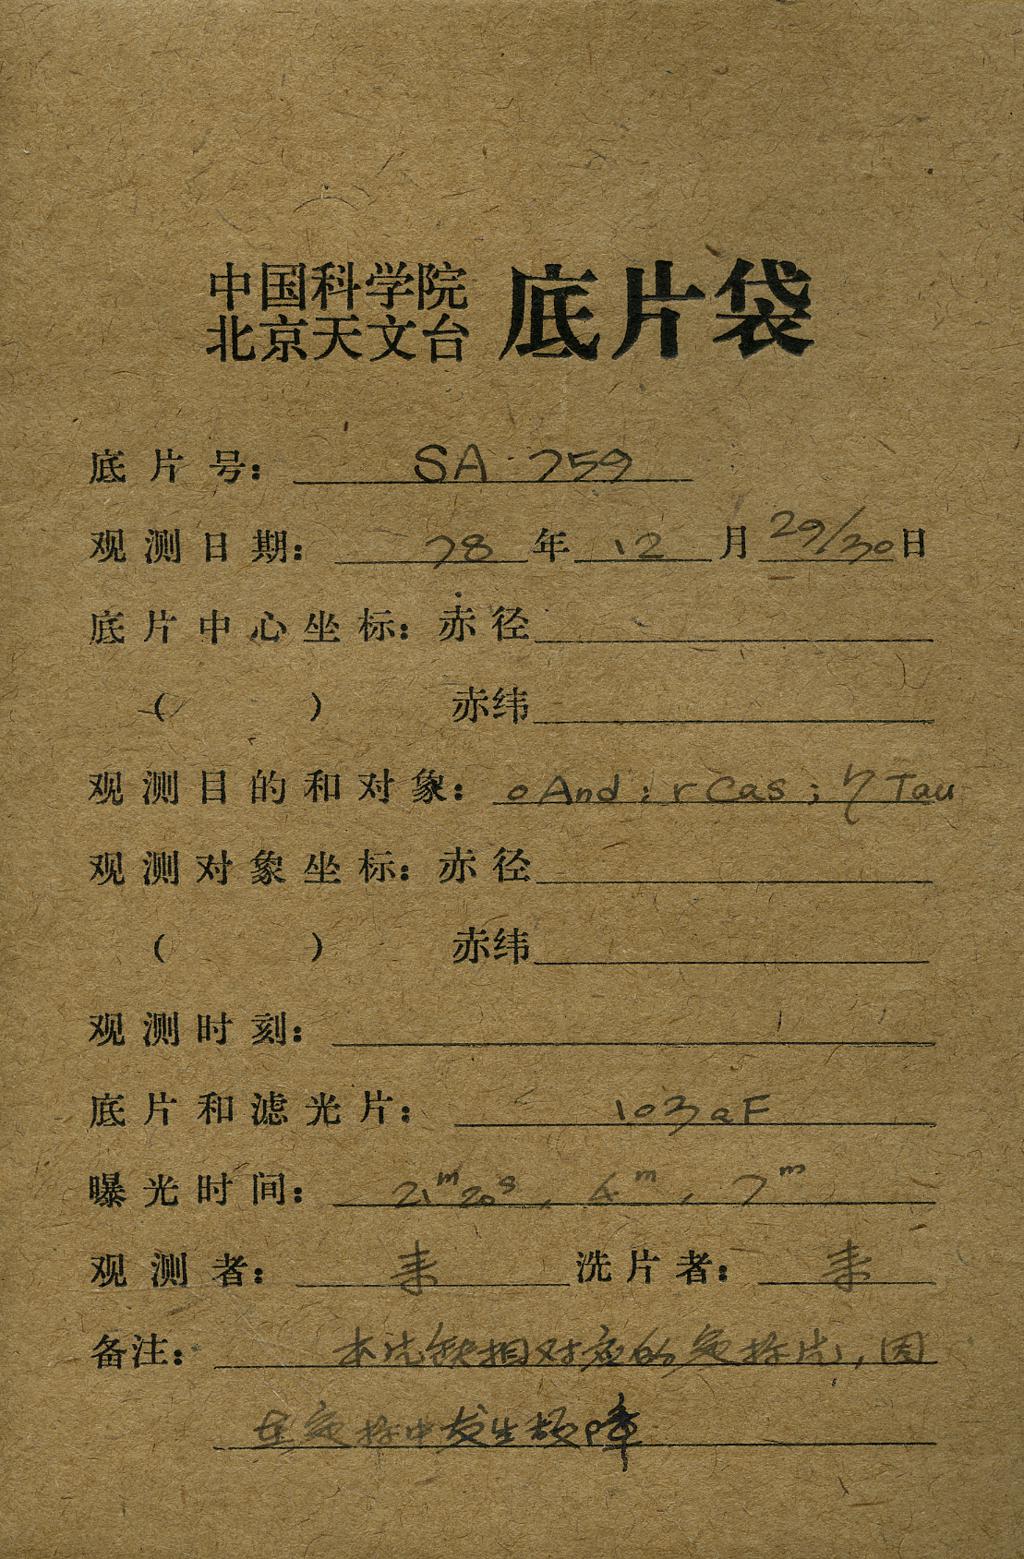 中国科学院
北京天文台 底片袋
底片号: SA 759
观测日期: 78 年 12 月 29/30 日
底片中心坐标: 赤径
( ) 赤纬
观测目的和对象: o And; r Cas; η Tau
观测对象坐标: 赤径
( ) 赤纬
观测时刻:
底片和滤光片: 103aF
曝光时间: 2m20s, 4m, 7m
观测者: 洗片者:
备注: 本片缺相对应的定标片,因
在定标中发生故障